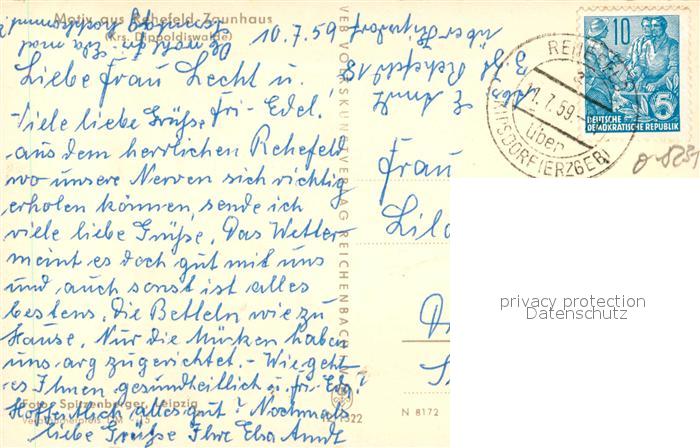 Motiv aus Rehefeld-Zaunhaus
(Krs. Dippoldiswalde)
10.7.59
Liebe Frau Lecht u.
Frl. Edel!
Viele liebe Grüße
aus dem herrlichen Rehefeld
wo unsere Nerven sich richtig
erholen können, sende ich
viele liebe Grüße. Das Wetter
meint es doch gut mit uns
und auch sonst ist alles
bestens, die Betteln wie zu
Hause. Nur die Mücken haben
uns arg zugerichtet. - Wie geht
es Ihnen gesundheitlich u. Frl. Edel?
Hoffentlich alles gut? Nochmals
liebe Grüße Ihre Elsa Arndt
Foto: Spitzenberger, Leipzig
Abs. E. Arndt
z. Zt. Rehefeld
über
VEB VOLKSKUNSTVERLAG REICHENBACH
N 8172
Frau
10
5
DEUTSCHE
DEMOKRATISCHE REPUBLIK
REHEFELD
1.7.59
über
(ERZGEB)
privacy protection
Datenschutz